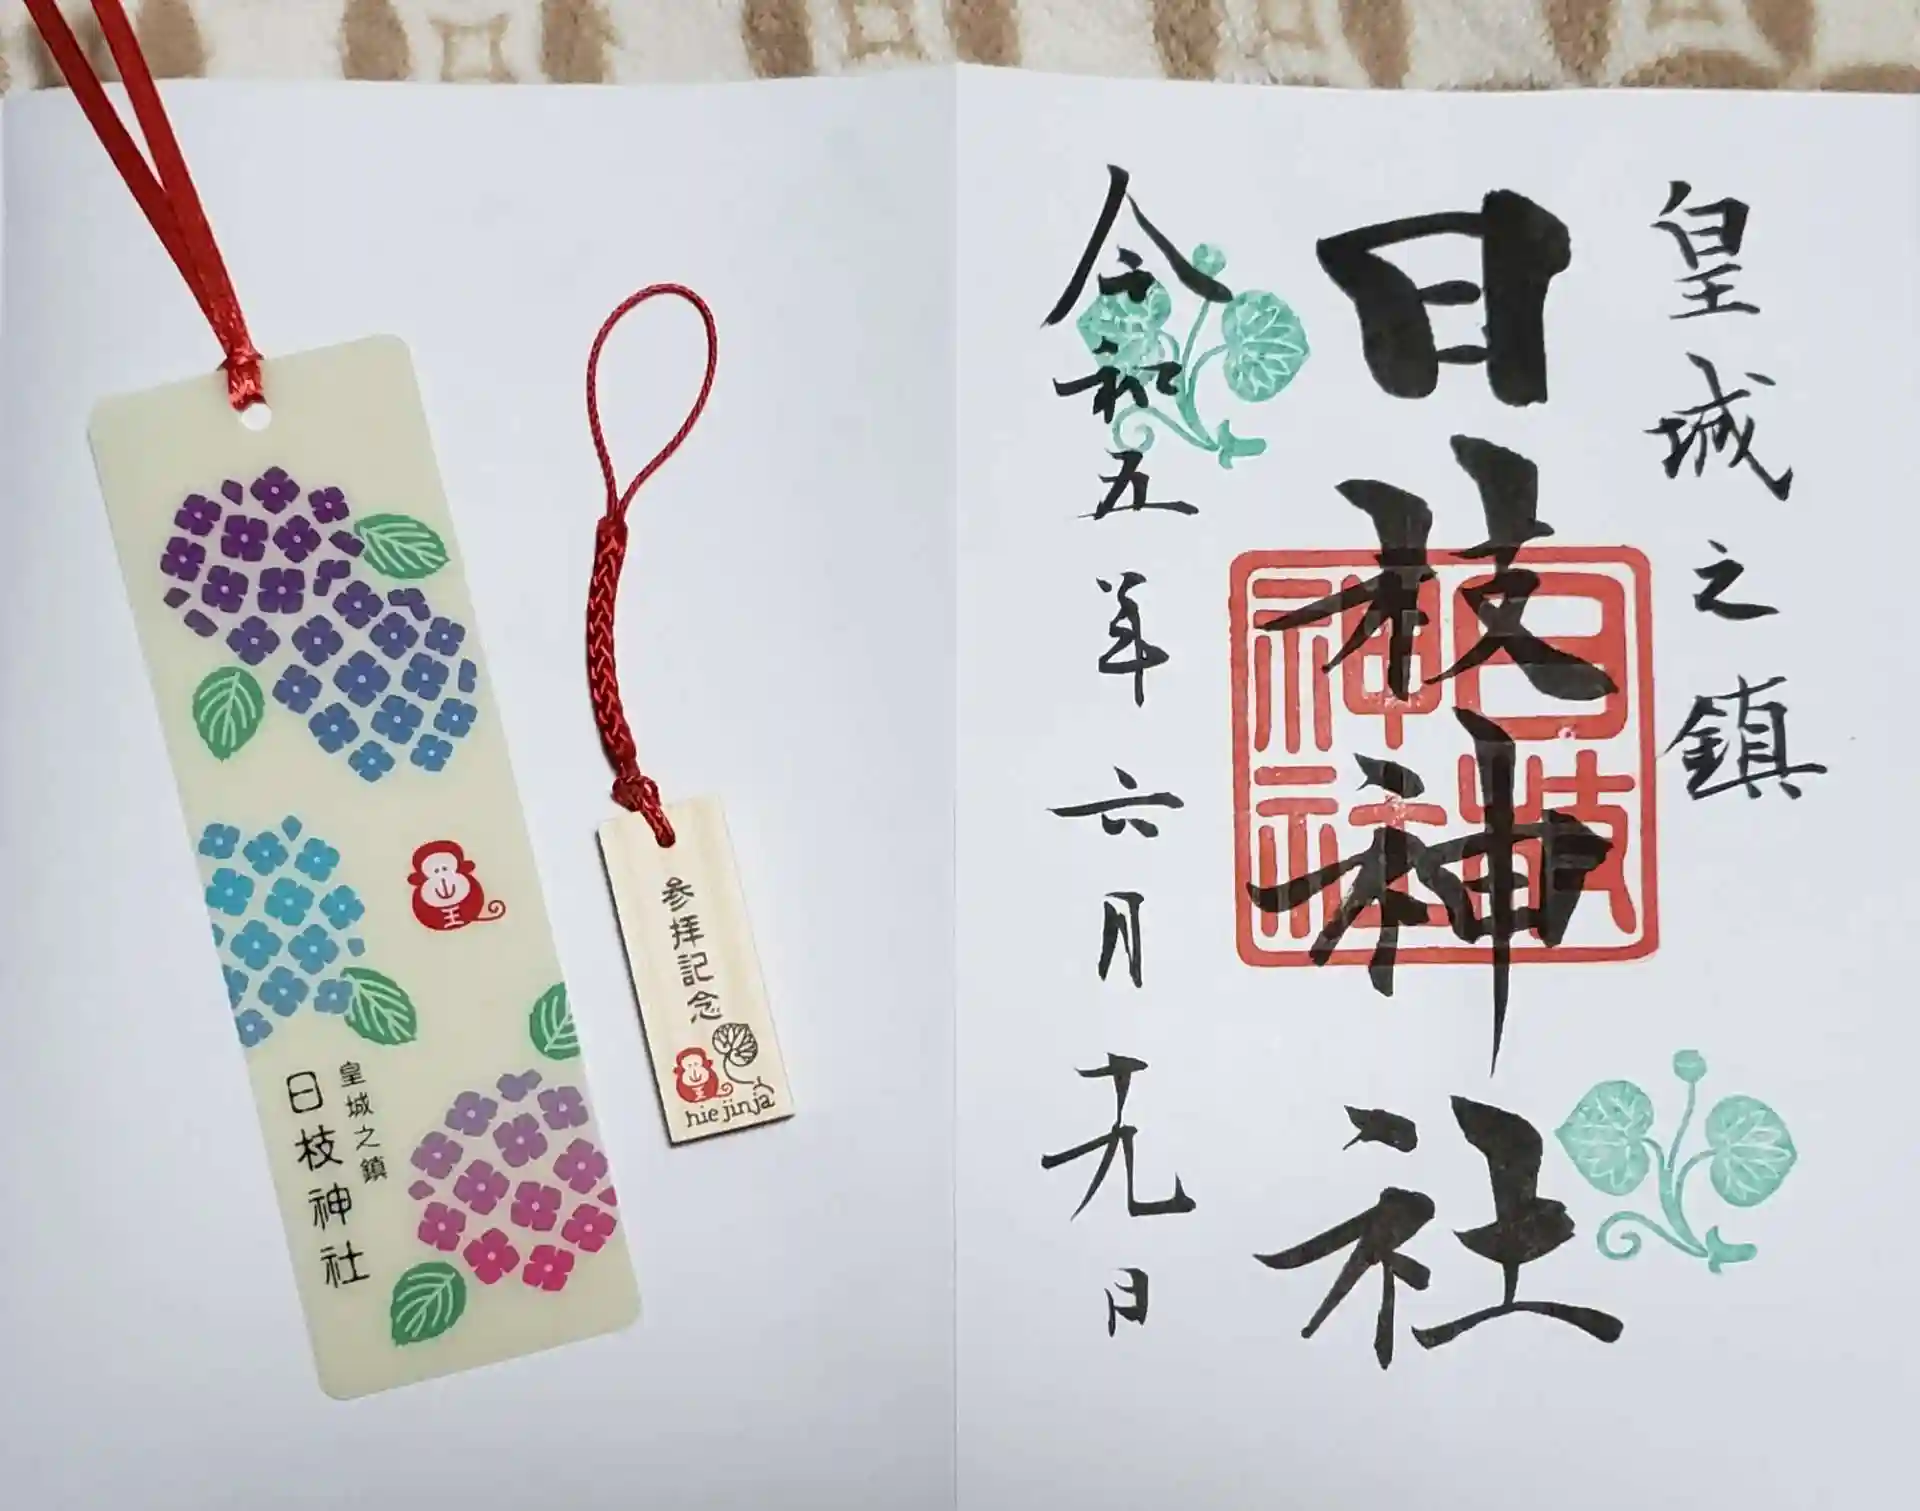 皇城之鎮
日枝神社
令和五年六月十九日
日枝
神社
参拝記念
王
hie jinja
王
皇城之鎮
日枝神社